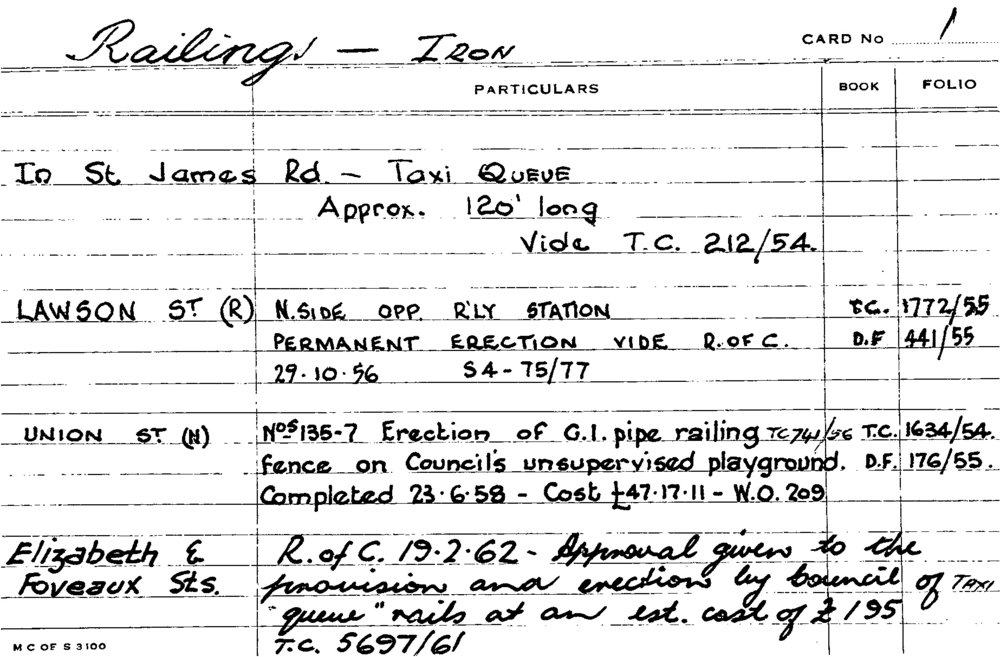 Railings — IRON CARD No 1
PARTICULARS BOOK FOLIO
In St James Rd. – Taxi QUEUE
Approx. 120' long
Vide T.C. 212/54.
LAWSON ST (R) N.SIDE OPP. R'LY STATION T.C. 1772/55
PERMANENT ERECTION VIDE R.OF C. D.F 441/55
29·10·56 S4-75/77
UNION ST (N) Nos 135-7 Erection of G.I. pipe railing TC741/56 T.C. 1634/54.
fence on Council's unsupervised playground. D.F. 176/55.
Completed 23·6·58 - Cost £47·17·11 - W.O. 209
Elizabeth & R. of C. 19·2·62 - Approval given to the
Foveaux Sts. provision and erection by Council of TAXI
"queue" rails at an est. cost of £195
M C OF S 3100 T.C. 5697/61